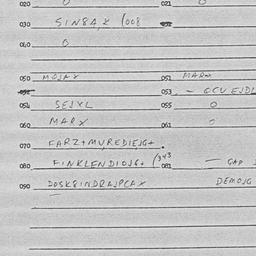 020 0 021 0
030 SINBAX (008
040 0
050 MOJAX 051 MARX
053 - OCUEJDL
054 SEJXL 055 0
060 MARX 061 0
070 FARZ+MUREDIEJG+.
080 FINKLENDIOJG+ (343 081 — GAP
090 DOSKEINDRAJPCAX DEMOJG